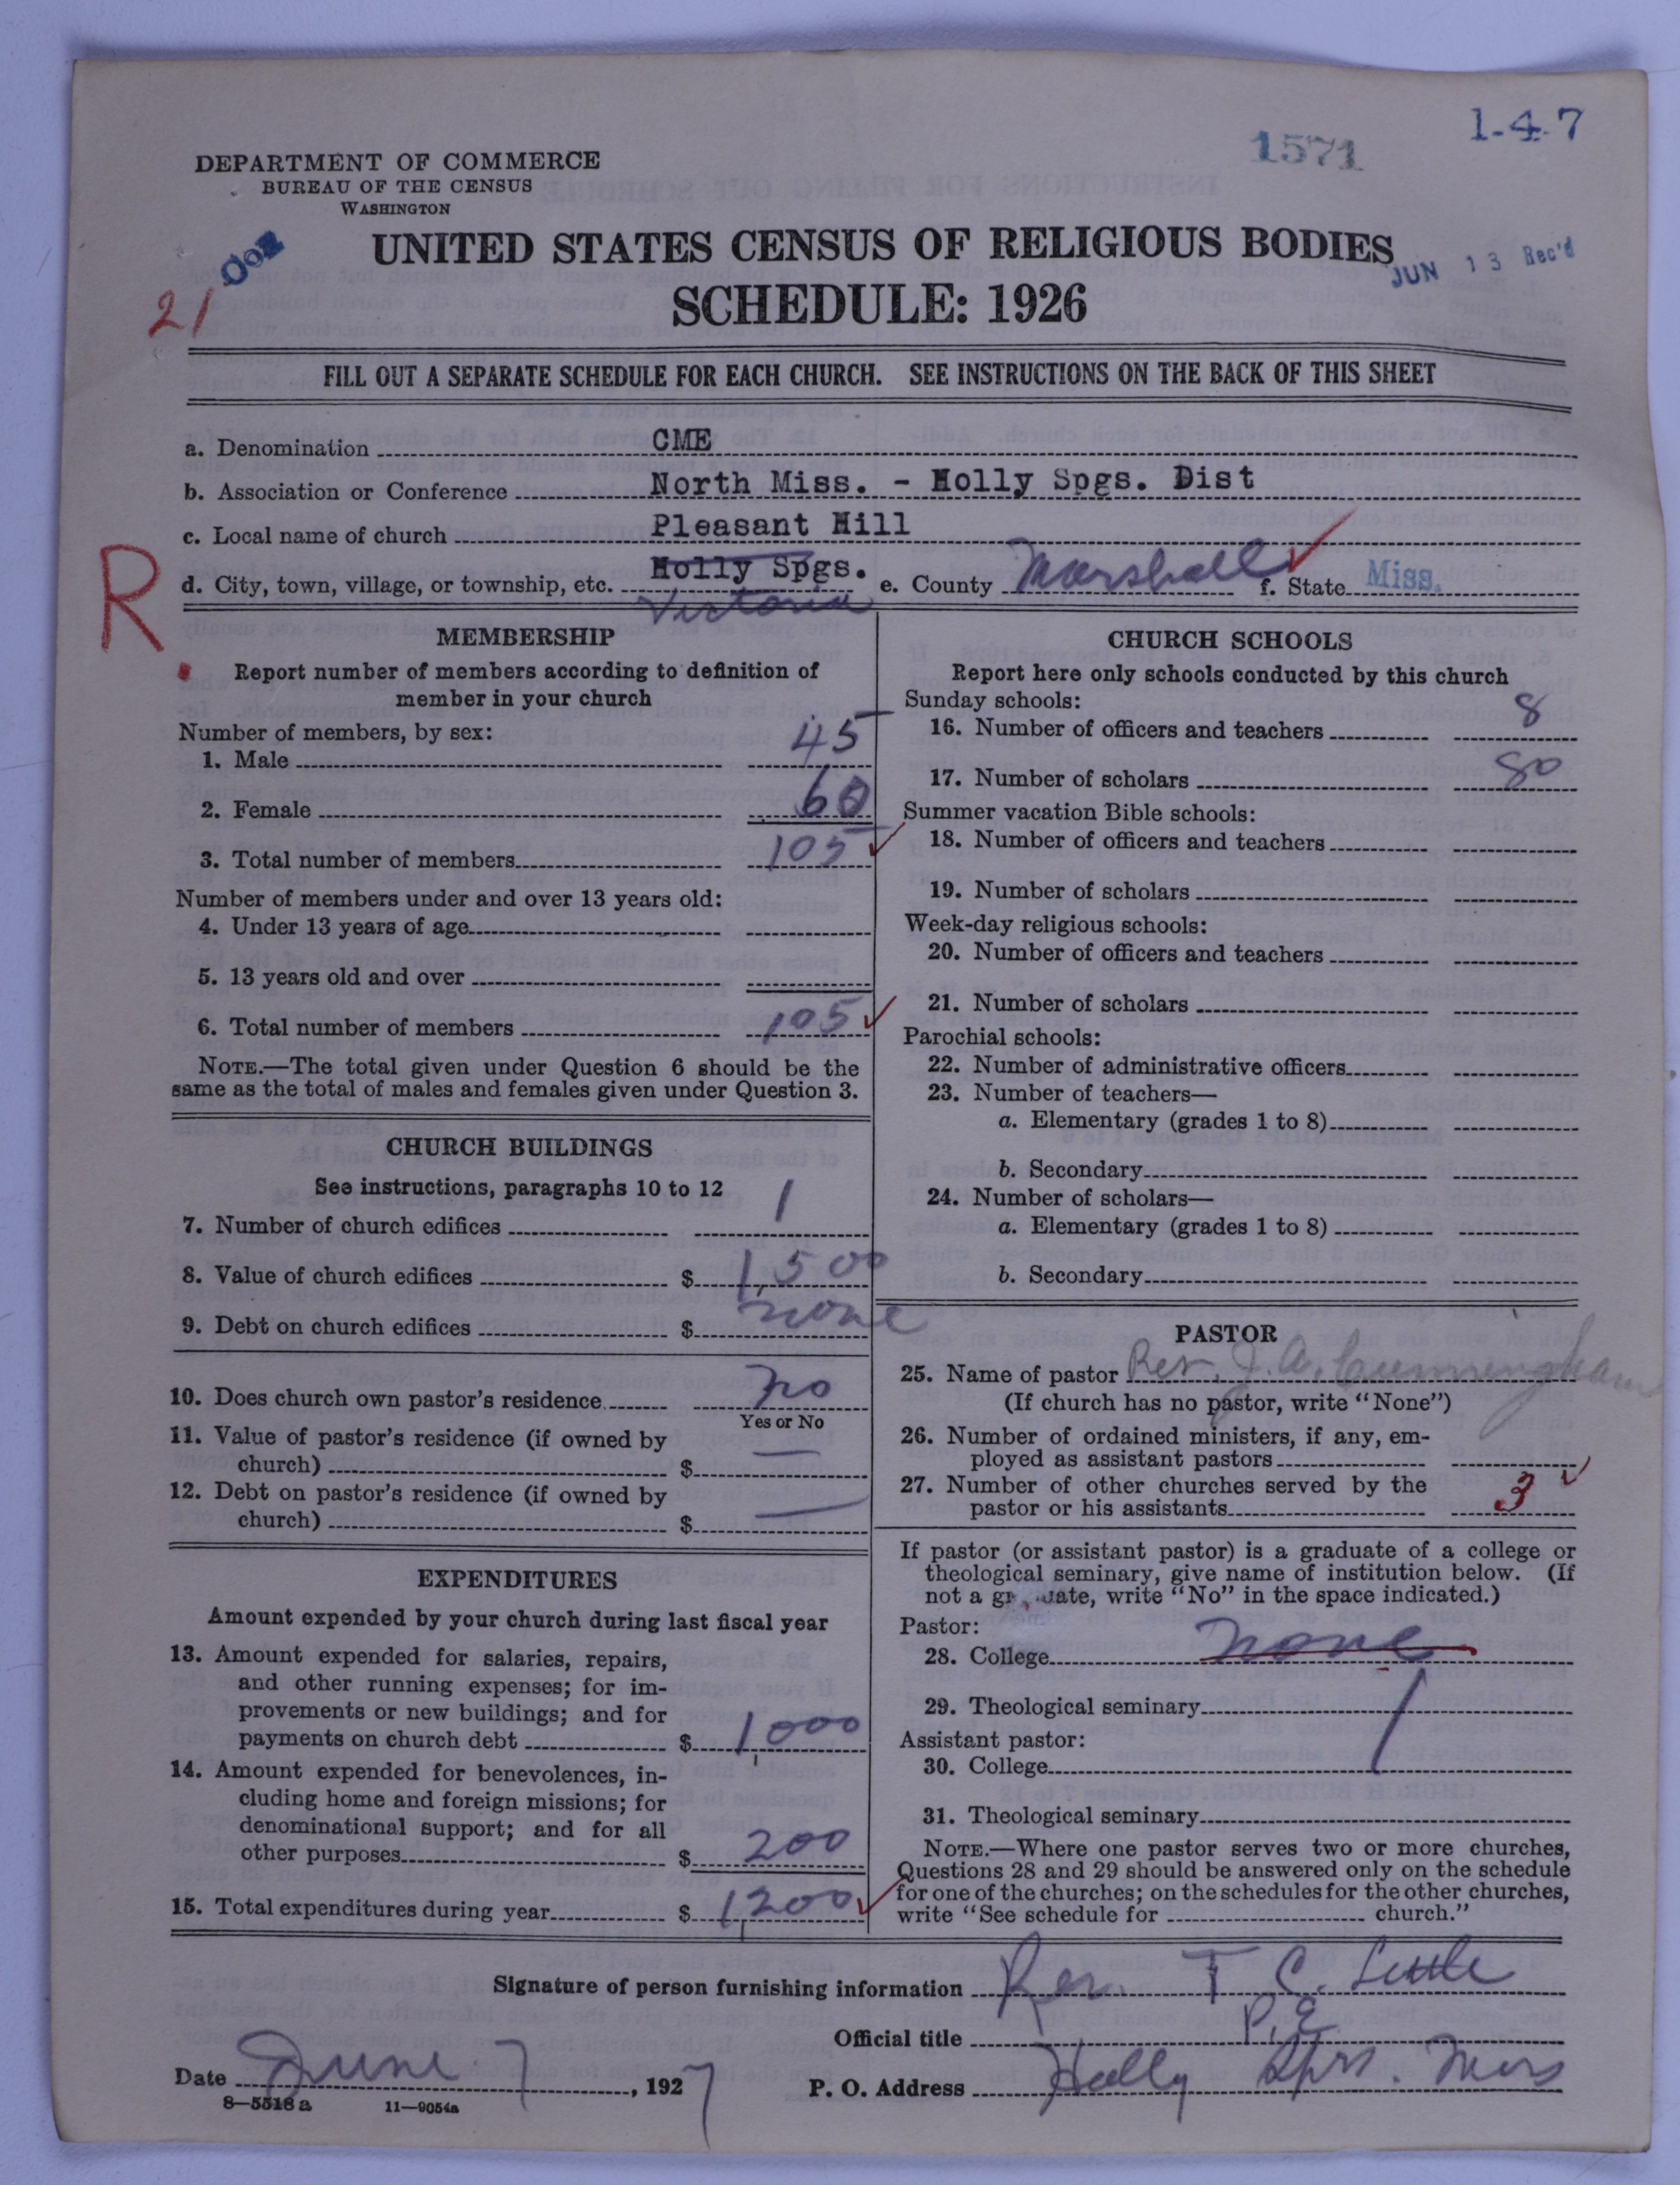 1-4-7
1571
DEPARTMENT OF COMMERCE
BUREAU OF THE CENSUS
WASHINGTON
UNITED STATES CENSUS OF RELIGIOUS BODIES
JUN 13 Rec'd
21
SCHEDULE: 1926
FILL OUT A SEPARATE SCHEDULE FOR EACH CHURCH. SEE INSTRUCTIONS ON THE BACK OF THIS SHEET
a. Denomination CME
b. Association or Conference North Miss. - Holly Spgs. Dist
c. Local name of church Pleasant Hill
R
d. City, town, village, or township, etc. Holly Spgs. e. County Marshall f. State Miss.
Victoria
MEMBERSHIP
Report number of members according to definition of
member in your church
Number of members, by sex:
1. Male 45
2. Female 60
3. Total number of members 105
Number of members under and over 13 years old:
4. Under 13 years of age
5. 13 years old and over
6. Total number of members 105
NOTE.—The total given under Question 6 should be the
same as the total of males and females given under Question 3.
CHURCH BUILDINGS
See instructions, paragraphs 10 to 12
7. Number of church edifices 1
8. Value of church edifices $ 1,500
9. Debt on church edifices $ none
10. Does church own pastor's residence no
Yes or No
11. Value of pastor's residence (if owned by
church) $ —
12. Debt on pastor's residence (if owned by
church) $ —
EXPENDITURES
Amount expended by your church during last fiscal year
13. Amount expended for salaries, repairs,
and other running expenses; for im-
provements or new buildings; and for
payments on church debt $ 1,000
14. Amount expended for benevolences, in-
cluding home and foreign missions; for
denominational support; and for all
other purposes $ 200
15. Total expenditures during year $ 1,200
CHURCH SCHOOLS
Report here only schools conducted by this church
Sunday schools:
16. Number of officers and teachers 8
17. Number of scholars 80
Summer vacation Bible schools:
18. Number of officers and teachers
19. Number of scholars
Week-day religious schools:
20. Number of officers and teachers
21. Number of scholars
Parochial schools:
22. Number of administrative officers
23. Number of teachers—
a. Elementary (grades 1 to 8)
b. Secondary
24. Number of scholars—
a. Elementary (grades 1 to 8)
b. Secondary
PASTOR
25. Name of pastor Rev. J. A. Cunningham
(If church has no pastor, write "None")
26. Number of ordained ministers, if any, em-
ployed as assistant pastors
27. Number of other churches served by the
pastor or his assistants 3
If pastor (or assistant pastor) is a graduate of a college or
theological seminary, give name of institution below. (If
not a graduate, write "No" in the space indicated.)
Pastor:
28. College none
29. Theological seminary
Assistant pastor:
30. College
31. Theological seminary
NOTE.—Where one pastor serves two or more churches,
Questions 28 and 29 should be answered only on the schedule
for one of the churches; on the schedules for the other churches,
write "See schedule for church."
Signature of person furnishing information Rev. T C. Little
Official title P. E
Date June 7, 1927
P. O. Address Holly Sprs. Miss
8—5518a 11—9054a